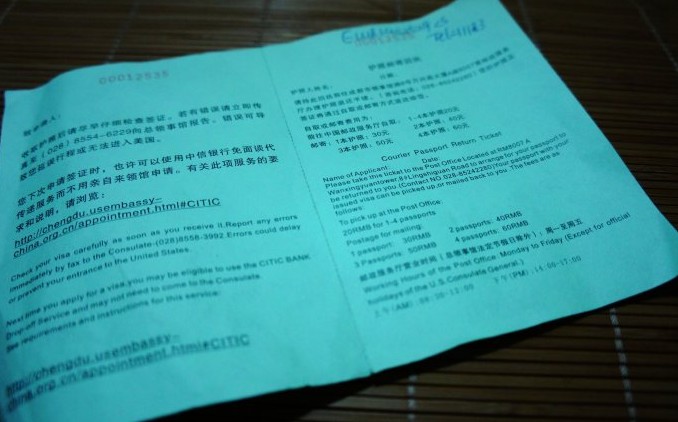 00012535
收取护照后请尽早仔细检查签证。若有错误请立即传
真至（028）8554-6229向总领事馆报告。错误可导
致您延误行程或无法进入美国。
您下次申请签证时，也许可以使用中信银行免面谈代
传递服务而不用亲自来领馆申请。有关此项服务的要
求和说明，请浏览：
http://chengdu.usembassy-
china.org.cn/appointment.html#CITIC
Check your visa carefully as soon as you receive it.Report any errors
immediately by fax to the Consulate-(028)8558-3992 Errors could delay
or prevent your entrance to the United States.
Next time you apply for a visa,you may be eligible to use the CITIC BANK
Drop-off Service and may not need to come to the Consulate.
See requirements and instructions for this service:
http://chengdu.usembassy-
china.org.cn/appointment.html#CITIC
00012535
护照邮寄回执
护照人姓名:
日期:
自取或邮寄费用为:
前往中国邮政服务厅自取: 1-4本护照20元
邮寄: 1本护照: 30元 2本护照: 40元
3本护照: 50元 4本护照: 60元
Courier Passport Return Ticket
Name of Applicant: Date
Please take this ticket to the Post Office Located at RM6007 A
Wanxingyuantower,8#Lingshiguan Road to arrange for your passport to
be returned to you (Contact NO.028-85242280)Your passport with your
issued visa can be picked up,or mailed back to you The fees are as
follows:
To pick up at the Post Office:
20RMB for 1-4 passports
Postage for mailing:
1 passport: 30RMB 2 passports: 40RMB
3 Passports: 50RMB 4 passports: 60RMB
邮政服务厅营业时间（总领事馆法定节假日除外）: 周一至周五
Working hours of the Post Office Monday to Friday (Except for official
holidays of the U.S.Consulate General.)
上午(AM): 08:30-12:00 下午(PM): 14:00-17:00